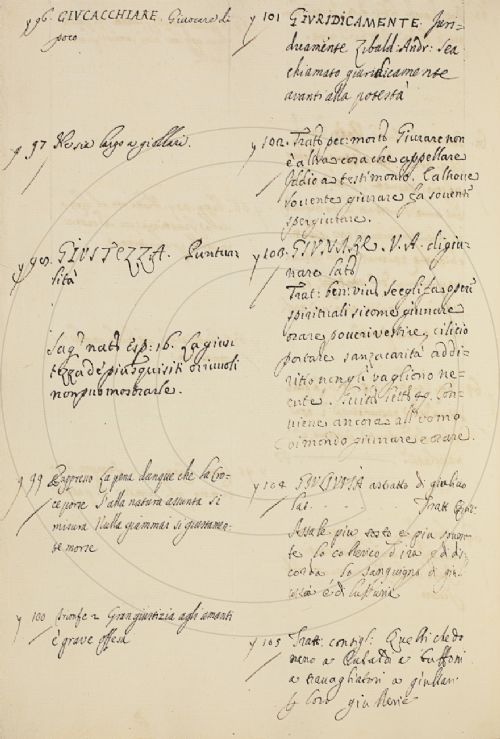 96. GIVCACCHIARE. Giuocare di
poco
97 Ne sia largo a giollari.
98. GIVSTEZZA. Puntua-
lità
Sag: nat: Esp: 16. La gius-
tezza de più squisiti oriuoli
non può mostrarle.
99 la pena dunque che la Cro-
ce porse S'alla natura assunta si
misura Nulla giammai si giustamen-
te morse
100 Trionfe 2 Gran giustizia agli amanti
è grave offesa
101 GIVRIDICAMENTE. Juri-
dicamente Zibald: Andr: Sia
chiamato giuridicamente
avanti alla potestà
102. Tratt: pec: mort: Giurare non
è altra cosa che appellare
Iddio a testimonio. E altrove
sovente giurare fa soventi
spergiurare.
103. V. A. digiu-
nare Lat:
Trat: ben: viv: Se egli fa opere
spirituali siccome giunare
orare poveri vestire, cilicio
portare sanza carità addi-
ritto non gli vagliono ne-
ente. Lett: 40. Con-
viene ancora all' uomo
giunare e orare.
104 GIULIVIA astratto di giulivo
Lat. . . . . . Tratt
Assale più tosto e più soven-
te lo collerico d'ira e di di-
corda lo sanguigno di giu-
livia e di lussuria
105 Tratt: consigl: Quelli che do-
nano a a buffoni
a travagliatori a giullari
loro giullerie